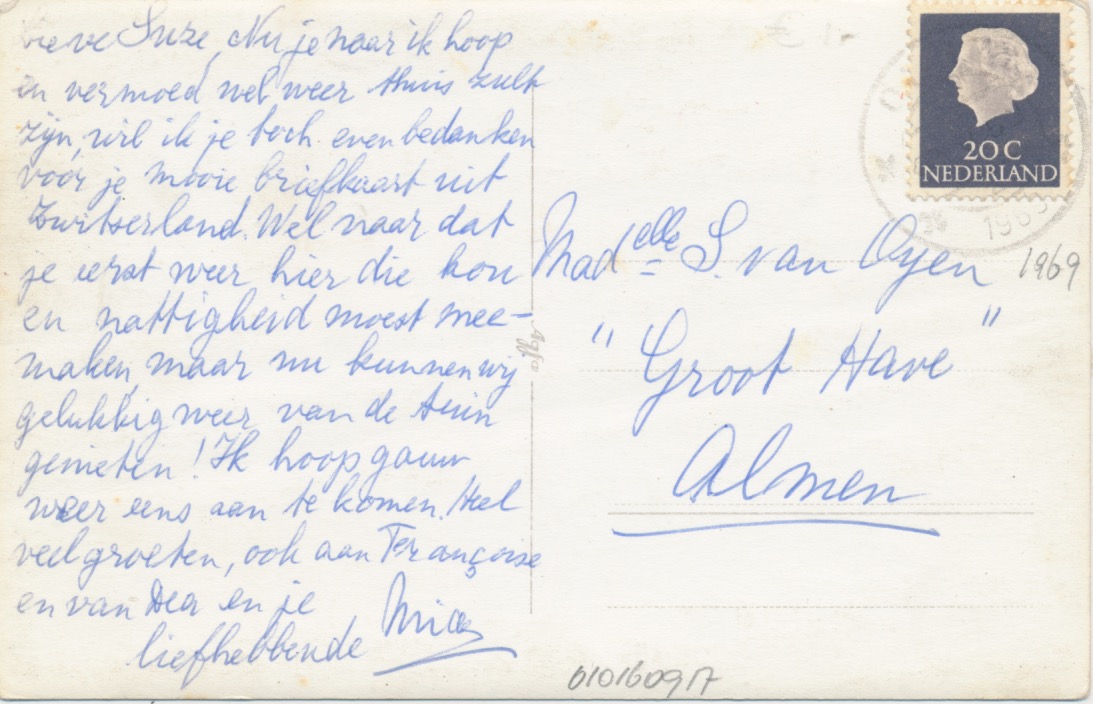 Lieve Suze, Nu je naar ik hoop
en vermoed wel weer thuis zult
zijn, wil ik je toch even bedanken
voor je mooie briefkaart uit
Zwitserland. Wel naar dat
je eerst weer hier die kou
en nattigheid moest mee-
maken, maar nu kunnen wij
gelukkig weer van de tuin
genieten! Ik hoop gauw
weer eens aan te komen. Heel
veel groeten, ook aan Françoise
en van en je
liefhebbende
Agfa
20 C
NEDERLAND
Madelle S. van Oyen
1969
"Groot Have"
Almen
010160917